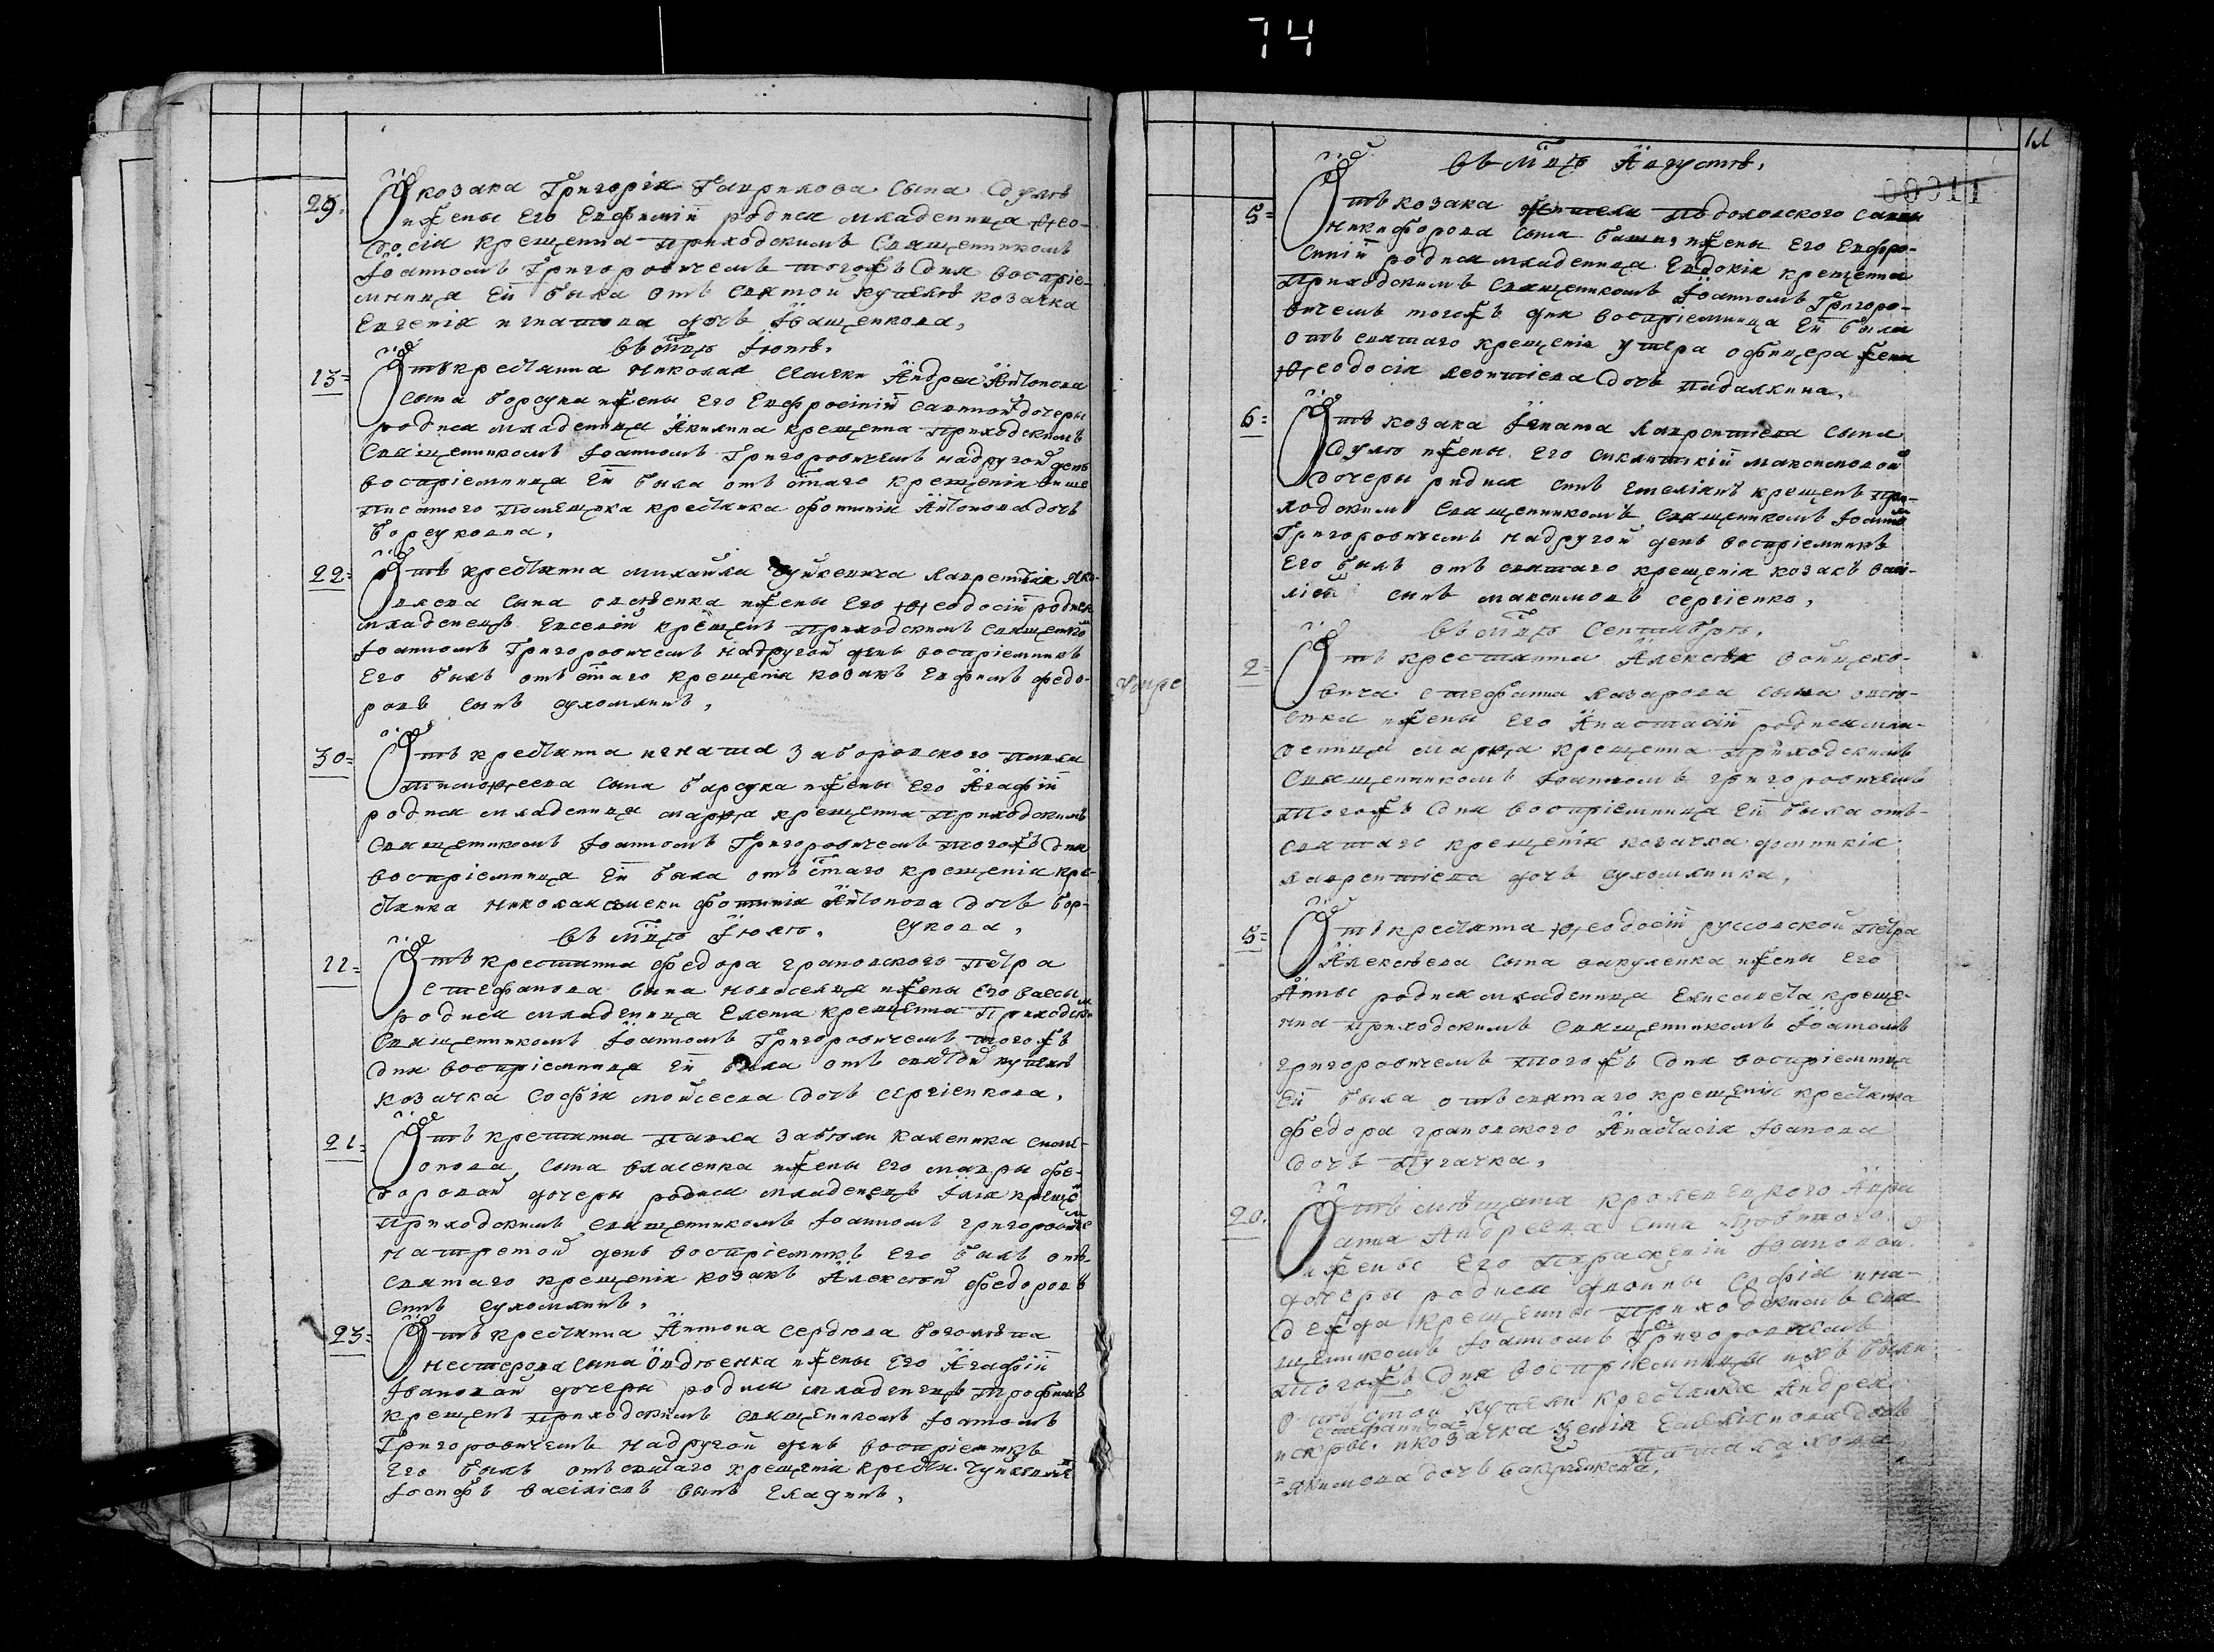 74
25.
Ѿ козака Григорія Гаврилова сына Сдулѣ
и жены его Евфиміи родися младеница Ѳео-
досія крещенна приходскимъ Священникомъ
Іоанномъ Григоровичемъ тогожъ дня воспріе-
мница ей была отъ святой купелѣ козачка
Евгенія игнатова дочь Іващенкова,
въ мцѣ Іюнѣ.
13=
Отъ крестянина Николая Андрея Антонова
сына борсука и жены его Евфросініи саввиной дочеры
родися младеница Акилина крещенна приходскимъ
Священникомъ Іоанномъ Григоровичемъ надругой день
воспріемница ей была отъ стаго крещенія више
писаного помещика крестянка фотинія Антонова дочь
борсуковна,
22=
Отъ крестянина михайла Лаврентія Яко-
влева сына овсѣенка и жены его Ѳеодосіи родися
младенецъ Евсевій крещенъ приходскимъ священико
Іоанномъ Григоровичемъ надругой день воспріемникъ
Его былъ отъ стаго крещенія козакъ Евфимъ федо-
ровъ сынъ сухомлинъ,
30=
Отъ крестянина игната Забаровского павла
тимоѳеева сына барсука и жены Его Агафіи
родися младеница марѳа крещенна приходскимъ
Священикомъ Іоанномъ Григоровичемъ тогожъ дня
воспріемница ей была отъ стаго крещенія кре-
стянка Николая фотинія Антонова дочь бор-
сукова,
въ мцѣ Іюлѣ.
11=
Отъ крестянина федора грановского петра
стефанова сына новоселца и жены Его васси
родися младеница Елена крещенна приходски
Священникомъ Іоанномъ Григоровичемъ тогожъ
дня воспріемница ей была отъ святой купелѣ
козачка Софія мойсеева дочь сергіенкова,
21=
Отъ крестянина павла Забѣли Каленика симе-
онова сына власенка и жены Его мавры фе-
доровой дочеры родися младенецъ Ілія крещен
приходскимъ священникомъ Іоанномъ григоровиче
на третой день воспріемникъ Его былъ отъ
святаго крещенія козакъ Алексѣй федоровъ
сынъ сухомлинъ,
23=
Отъ крестянина Антона сердюка боголѣпа
нестерова сына Овдѣенка и жены Его Агафіи
Івановой дочеры родися младенецъ трофимъ
крещенъ приходскимъ священикомъ Іоанномъ
Григоровичемъ надругой день воспріемникъ
Его былъ отъ святаго крещенія крестя.
Іосифъ васіліевъ сынъ Еладинъ,
11
00011
въ мцѣ Августѣ,
5=
Отъ козака подоловского саввы
никифорова сына и жены его Евфро-
синіи родися младеница Евдокія крещенна
приходскимъ священикомъ Іоанномъ Григоро-
вичемъ тогожъ дня воспріемница ей была
отъ святаго крещенія унтера офицера жена
Ѳеодосія леонтіева дочь падалкина,
6=
Отъ козака Ігната Лаврентіева сына
Сдулѣ и жены его сиклитикіи максимовой
дочеры родися синъ Емеліянъ крещенъ при-
ходскимъ священникомъ священикомъ Іоанно
Григоровичемъ надругой день воспріемникъ
Его былъ отъ святаго крещенія козакъ васи-
лій сынъ максимовъ сергіенко,
въ мцѣ Септиѣврѣ.
2=
Отъ крестянина Алексѣя войцехо-
вича стефана лазарова сына овсѣ-
енка и жены его Анастасіи родися мла-
деница марѳа крещенна приходскимъ
Священникомъ Іоанномъ григоровичемъ
тогожъ дня воспріемница ей была отъ
святаго крещенія козачка домникія
лаврентіева дочь сухомлинка,
5=
Отъ крестянина Ѳеодосіи руссовской петра
Алексѣева сына вакуленка и жены его
Анны родися младеница Елисавета креще-
нна приходскимъ священникомъ Іоаномъ
григоровичемъ тогожъ дня воспріемница
ей была отъ святаго крещенія крестянина
федора грановского Анастасія Іванова
дочь пугачка,
20.
Отъ мѣщана кролевецкого
Андреева сына
и жены Его параскевіи Івановой
дочеры родися двойны Софія и на-
дежда крещенны приходскимъ свя-
щенникомъ Іоанномъ Григоровичемъ
тогожъ дня воспріемницы ихъ были
отъ стой купели крестянка Андрея
искры стефанида
и козачка Ксенія Емеліянова дочь
=якимова дочь